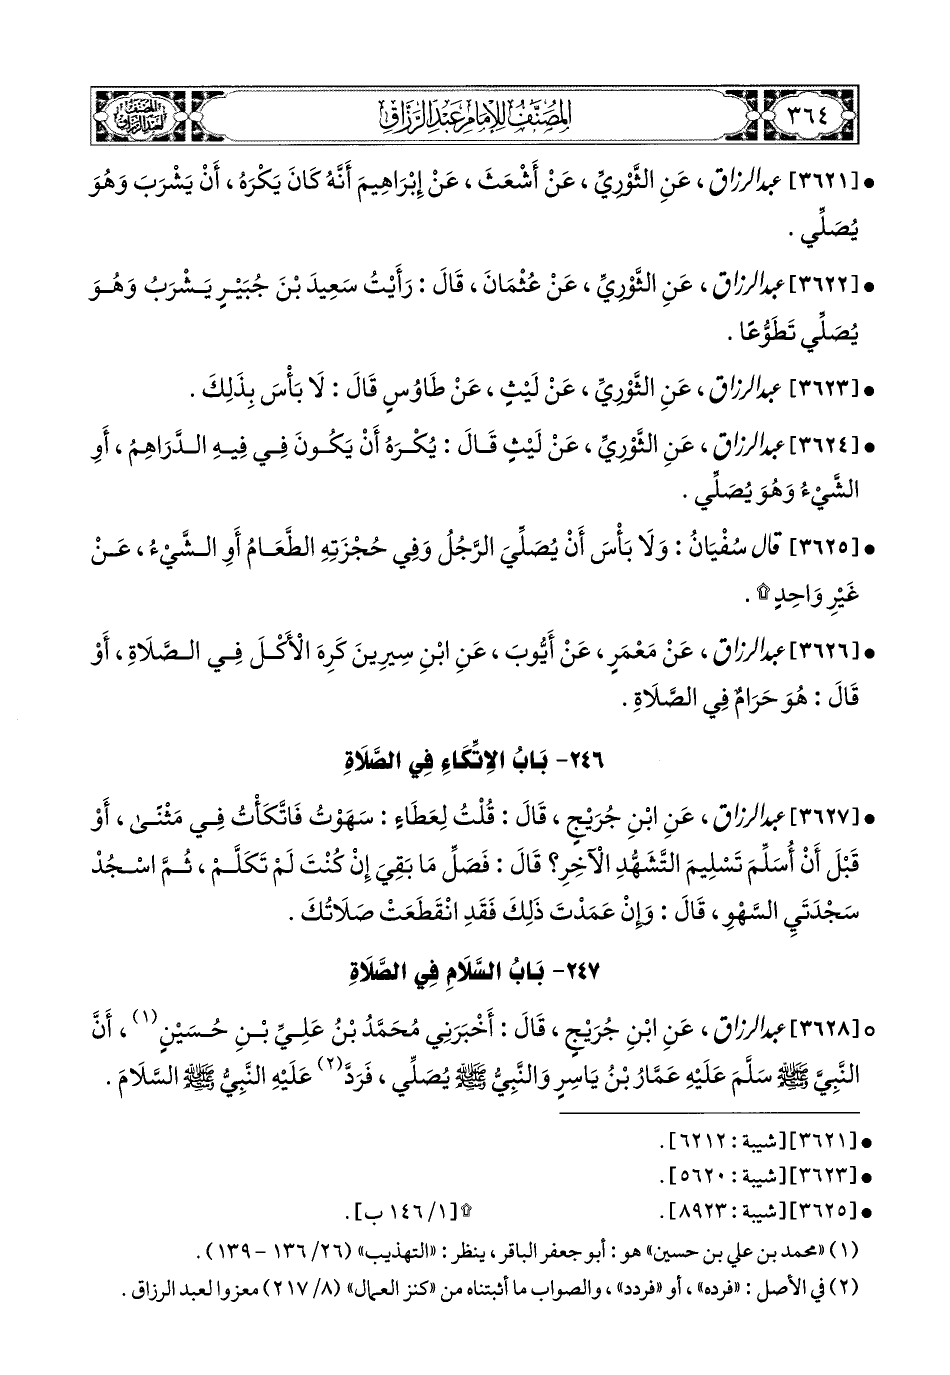 ٣٦٤ المُصَنَّفُ لِلإِمَامِ عَبْدِ الرَّزَّاقِ
• [٣٦٢١] عبد الرزاق، عَنِ الثَّوْرِيِّ، عَنْ أَشْعَثَ، عَنْ إِبْرَاهِيمَ أَنَّهُ كَانَ يَكْرَهُ، أَنْ يَشْرَبَ وَهُوَ
يُصَلِّي.
• [٣٦٢٢] عبد الرزاق، عَنِ الثَّوْرِيِّ، عَنْ عُثْمَانَ، قَالَ: رَأَيْتُ سَعِيدَ بْنَ جُبَيْرٍ يَشْرَبُ وَهُوَ
يُصَلِّي تَطَوُّعًا.
• [٣٦٢٣] عبد الرزاق، عَنِ الثَّوْرِيِّ، عَنْ لَيْثٍ، عَنْ طَاوُسٍ قَالَ: لَا بَأْسَ بِذَلِكَ.
• [٣٦٢٤] عبد الرزاق، عَنِ الثَّوْرِيِّ، عَنْ لَيْثٍ قَالَ: يُكْرَهُ أَنْ يَكُونَ فِي فِيهِ الدَّرَاهِمُ، أَوِ
الشَّيْءُ وَهُوَ يُصَلِّي.
• [٣٦٢٥] قال سُفْيَانُ: وَلَا بَأْسَ أَنْ يُصَلِّيَ الرَّجُلُ وَفِي حُجْزَتِهِ الطَّعَامُ أَوِ الشَّيْءُ، عَنْ
غَيْرِ وَاحِدٍ ۩.
• [٣٦٢٦] عبد الرزاق، عَنْ مَعْمَرٍ، عَنْ أَيُّوبَ، عَنِ ابْنِ سِيرِينَ كَرِهَ الْأَكْلَ فِي الصَّلَاةِ، أَوْ
قَالَ: هُوَ حَرَامٌ فِي الصَّلَاةِ.
٢٤٦- بَابُ الِاتِّكَاءِ فِي الصَّلَاةِ
• [٣٦٢٧] عبد الرزاق، عَنِ ابْنِ جُرَيْجٍ، قَالَ: قُلْتُ لِعَطَاءٍ: سَهَوْتُ فَاتَّكَأْتُ فِي مَثْنَى، أَوْ
قَبْلَ أَنْ أُسَلِّمَ تَسْلِيمَ التَّشَهُّدِ الْآخِرِ؟ قَالَ: فَصَلِّ مَا بَقِيَ إِنْ كُنْتَ لَمْ تَكَلَّمْ، ثُمَّ اسْجُدْ
سَجْدَتَيِ السَّهْوِ، قَالَ: وَإِنْ عَمَدْتَ ذَلِكَ فَقَدِ انْقَطَعَتْ صَلَاتُكَ.
٢٤٧- بَابُ السَّلَامِ فِي الصَّلَاةِ
○ [٣٦٢٨] عبد الرزاق، عَنِ ابْنِ جُرَيْجٍ، قَالَ: أَخْبَرَنِي مُحَمَّدُ بْنُ عَلِيِّ بْنِ حُسَيْنٍ(١)، أَنَّ
النَّبِيَّ ﷺ سَلَّمَ عَلَيْهِ عَمَّارُ بْنُ يَاسِرٍ وَالنَّبِيُّ ﷺ يُصَلِّي، فَرَدَّ(٢) عَلَيْهِ النَّبِيُّ ﷺ السَّلَامَ.
• [٣٦٢١] [شيبة: ٦٢١٢].
• [٣٦٢٣] [شيبة: ٥٦٢٠].
• [٣٦٢٥] [شيبة: ٨٩٢٣]. ۩ [١/ ١٤٦ ب].
(١) «محمد بن علي بن حسين» هو: أبو جعفر الباقر، ينظر: «التهذيب» (٢٦/ ١٣٦ - ١٣٩).
(٢) في الأصل: «فرده»، أو «فردد»، والصواب ما أثبتناه من «كنز العمال» (٨/ ٢١٧) معزوا لعبد الرزاق.